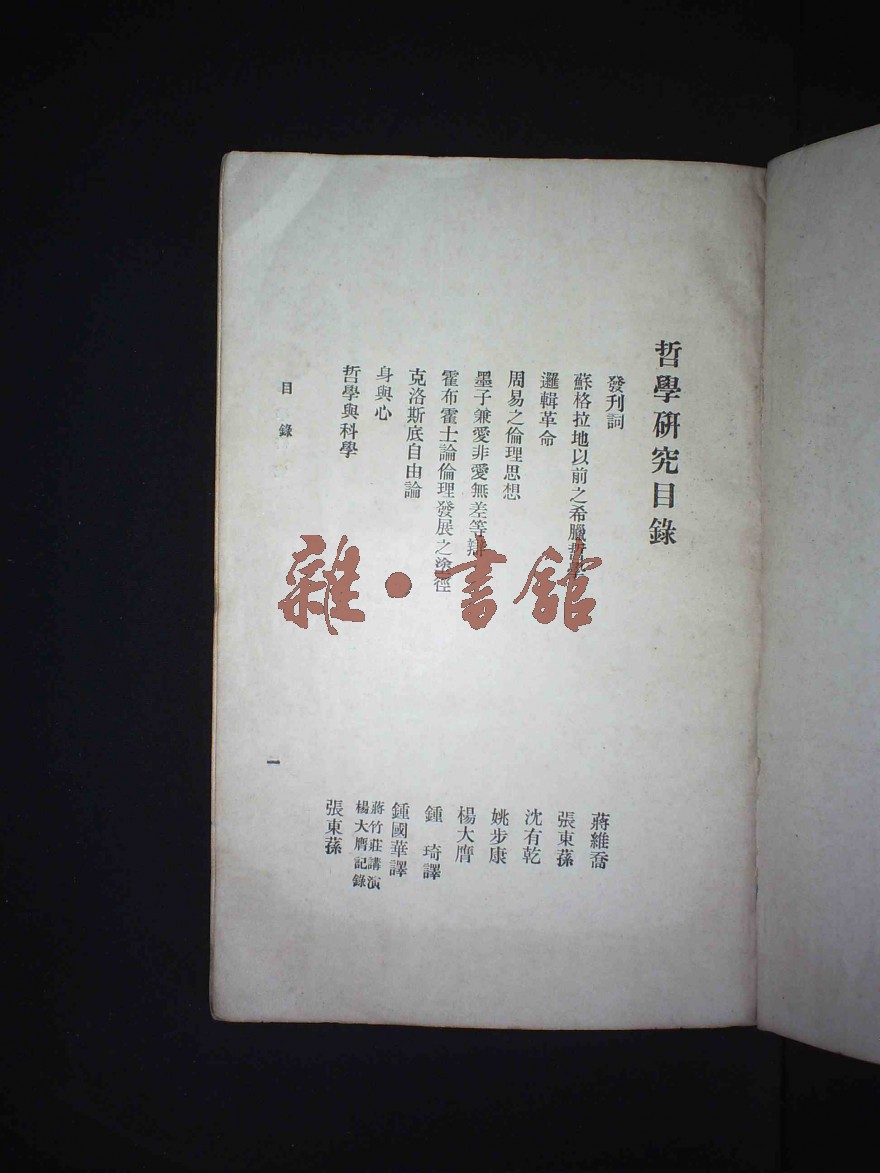 哲學研究目錄
發刊詞
蔣維喬
蘇格拉地以前之希臘哲學
張東蓀
邏輯革命
沈有乾
周易之倫理思想
姚步康
墨子兼愛非愛無差等辯
楊大膺
霍布霍士論倫理發展之塗徑
鍾琦譯
克洛斯底自由論
鍾國華譯
身與心
蔣竹莊講演
楊大膺記錄
哲學與科學
張東蓀
目錄
一
雜·書館